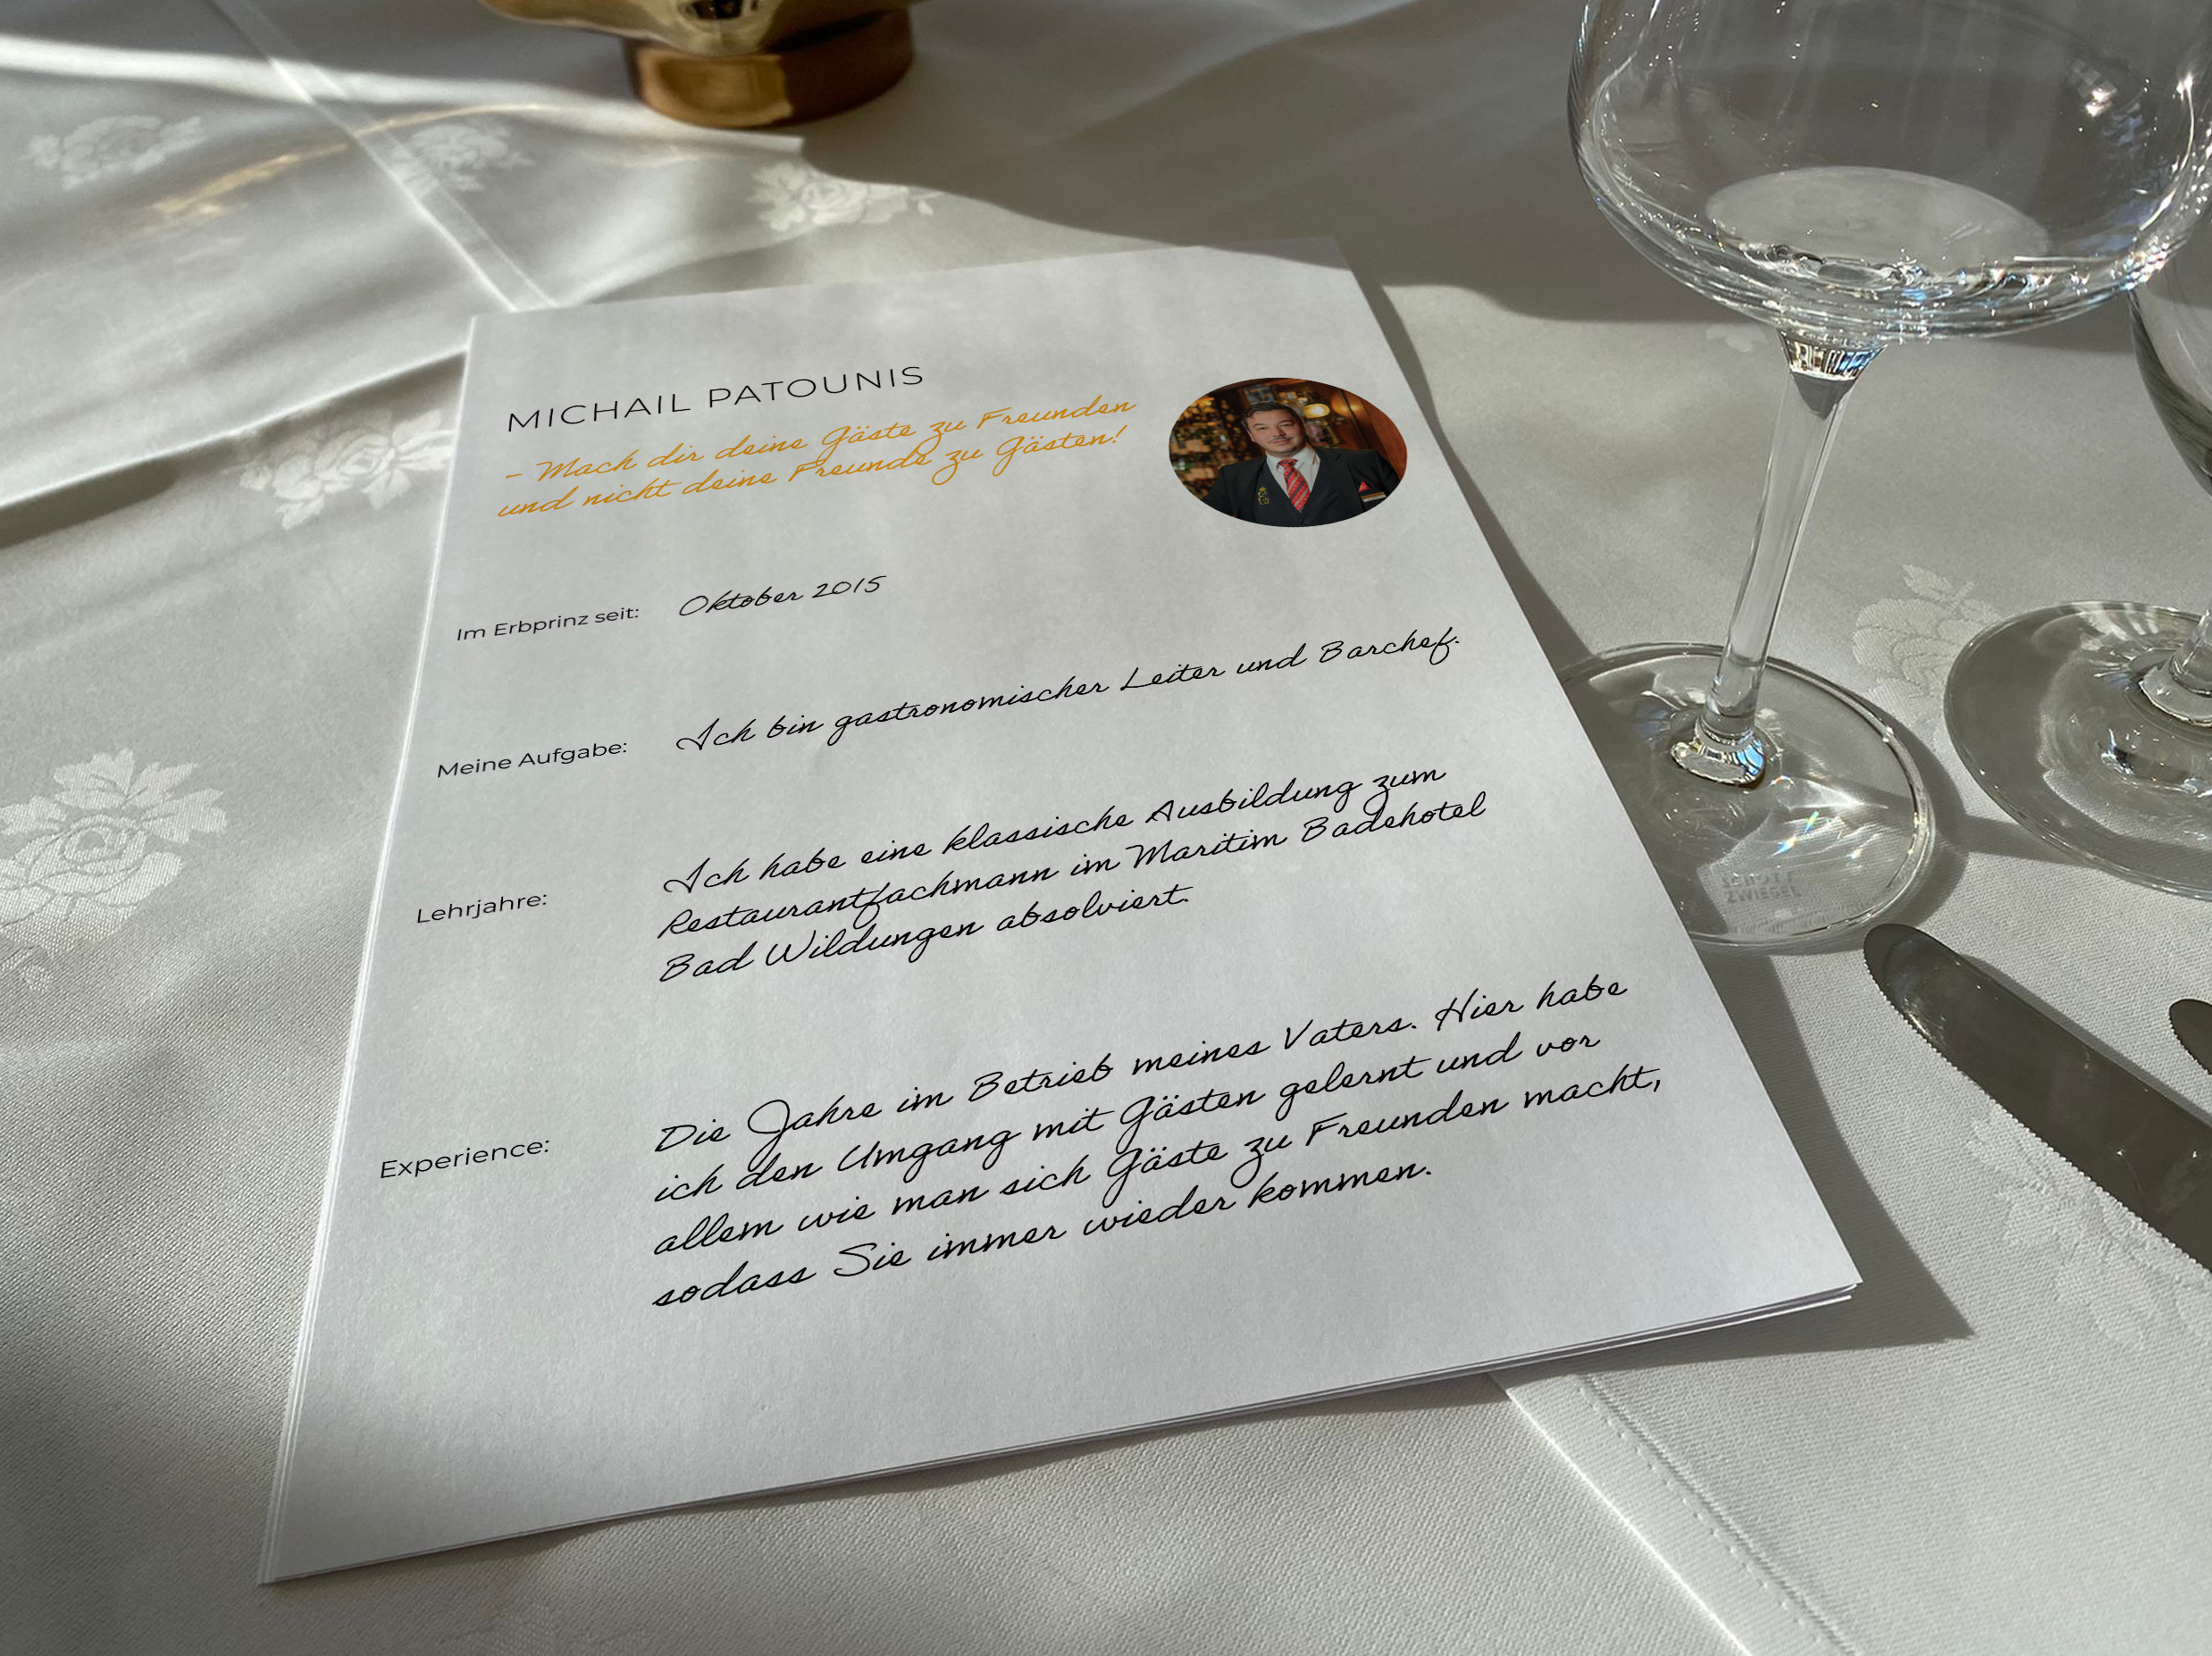 MICHAIL PATOUNIS
- Mach dir deine Gäste zu Freunden
und nicht deine Freunde zu Gästen!
Im Erbprinz seit: Oktober 2015
Meine Aufgabe: Ich bin gastronomischer Leiter und Barchef.
Lehrjahre: Ich habe eine klassische Ausbildung zum
Restaurantfachmann im Maritim Badehotel
Bad Wildungen absolviert.
Experience: Die Jahre im Betrieb meines Vaters. Hier habe
ich den Umgang mit Gästen gelernt und vor
allem wie man sich Gäste zu Freunden macht,
sodass Sie immer wieder kommen.
SCHOTT
ZWIESEL